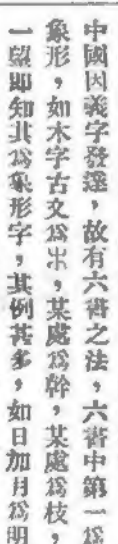 中國因義字發達，故有六書之法，六書中第一為
象形，如木字古文為𣎳，某處為幹，某處為枝，
一望即知其為象形字，其例甚多，如日加月為明